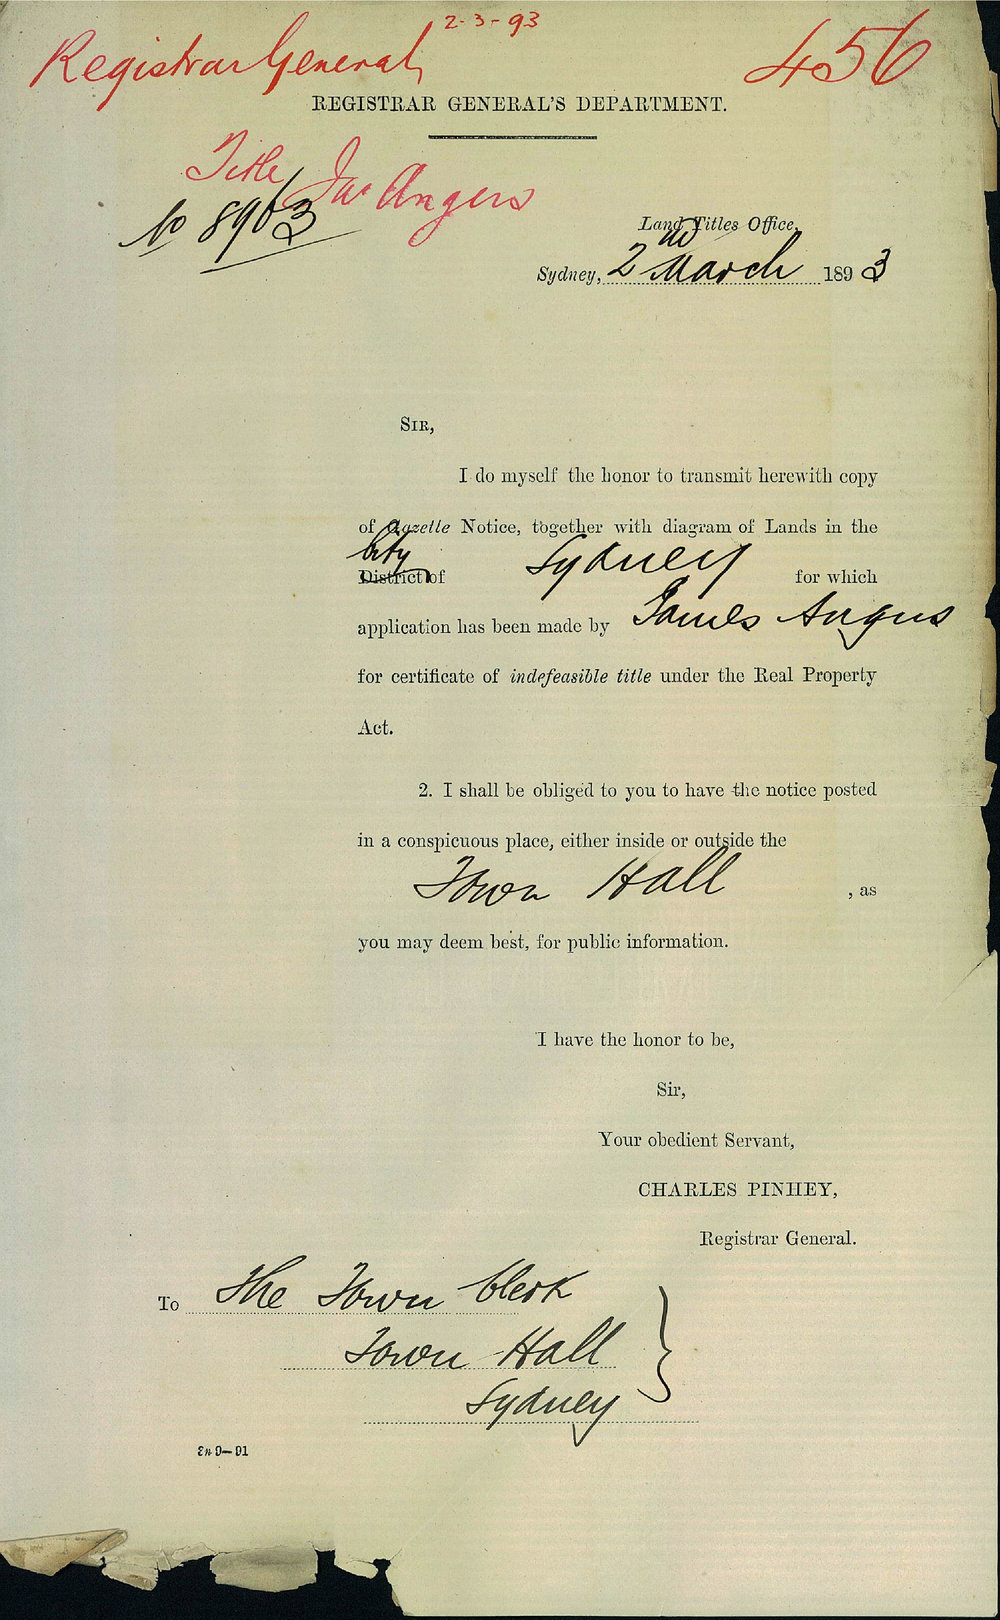 2-3-93
Registrar General
456
REGISTRAR GENERAL'S DEPARTMENT.
Title Jas Angus
No 8963
Land Titles Office,
Sydney, 2nd March 1893
SIR,
I do myself the honor to transmit herewith copy
of Gazette Notice, together with diagram of Lands in the
City
District of Sydney for which
application has been made by James Angus
for certificate of indefeasible title under the Real Property
Act.
2. I shall be obliged to you to have the notice posted
in a conspicuous place, either inside or outside the
Town Hall , as
you may deem best, for public information.
I have the honor to be,
Sir,
Your obedient Servant,
CHARLES PINHEY,
Registrar General.
To The Town Clerk
Town Hall
Sydney
9—91